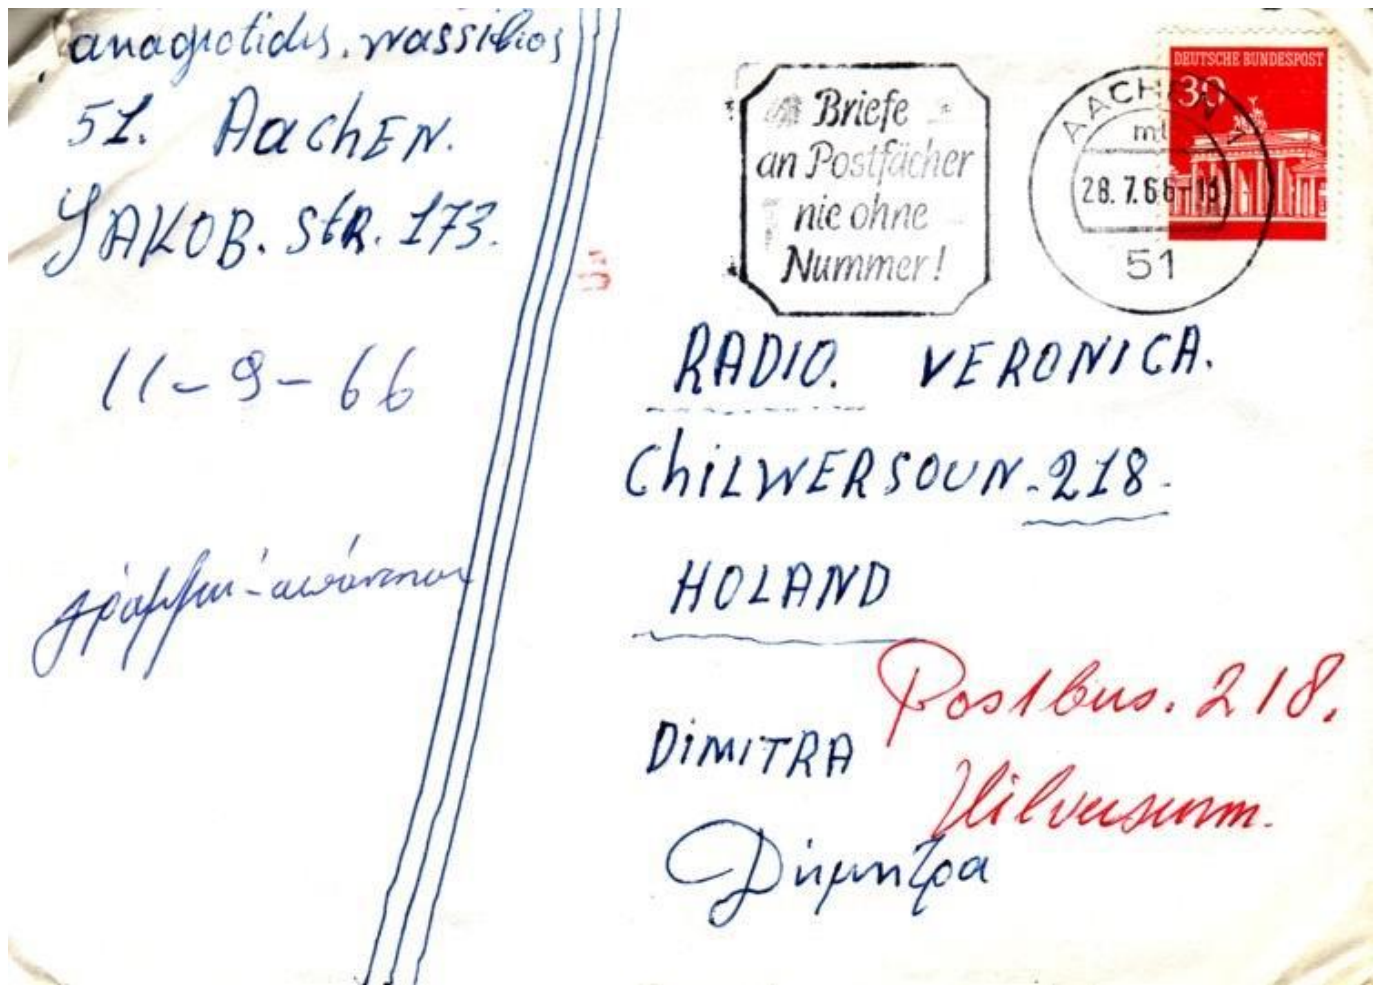 anagnotidis. wassilios
51. AachEN.
JAKOB. StR. 173.
11-9-66
Briefe
an Postfächer
nie ohne
Nummer!
AACHEN 1
mt
28.7.66-13
51
DEUTSCHE BUNDESPOST
30
RADIO. VERONICA.
ChiLWERSOUN-218-
HOLAND
Postbus. 218.
Hilversum.
DiMiTRA
Δήμητρα